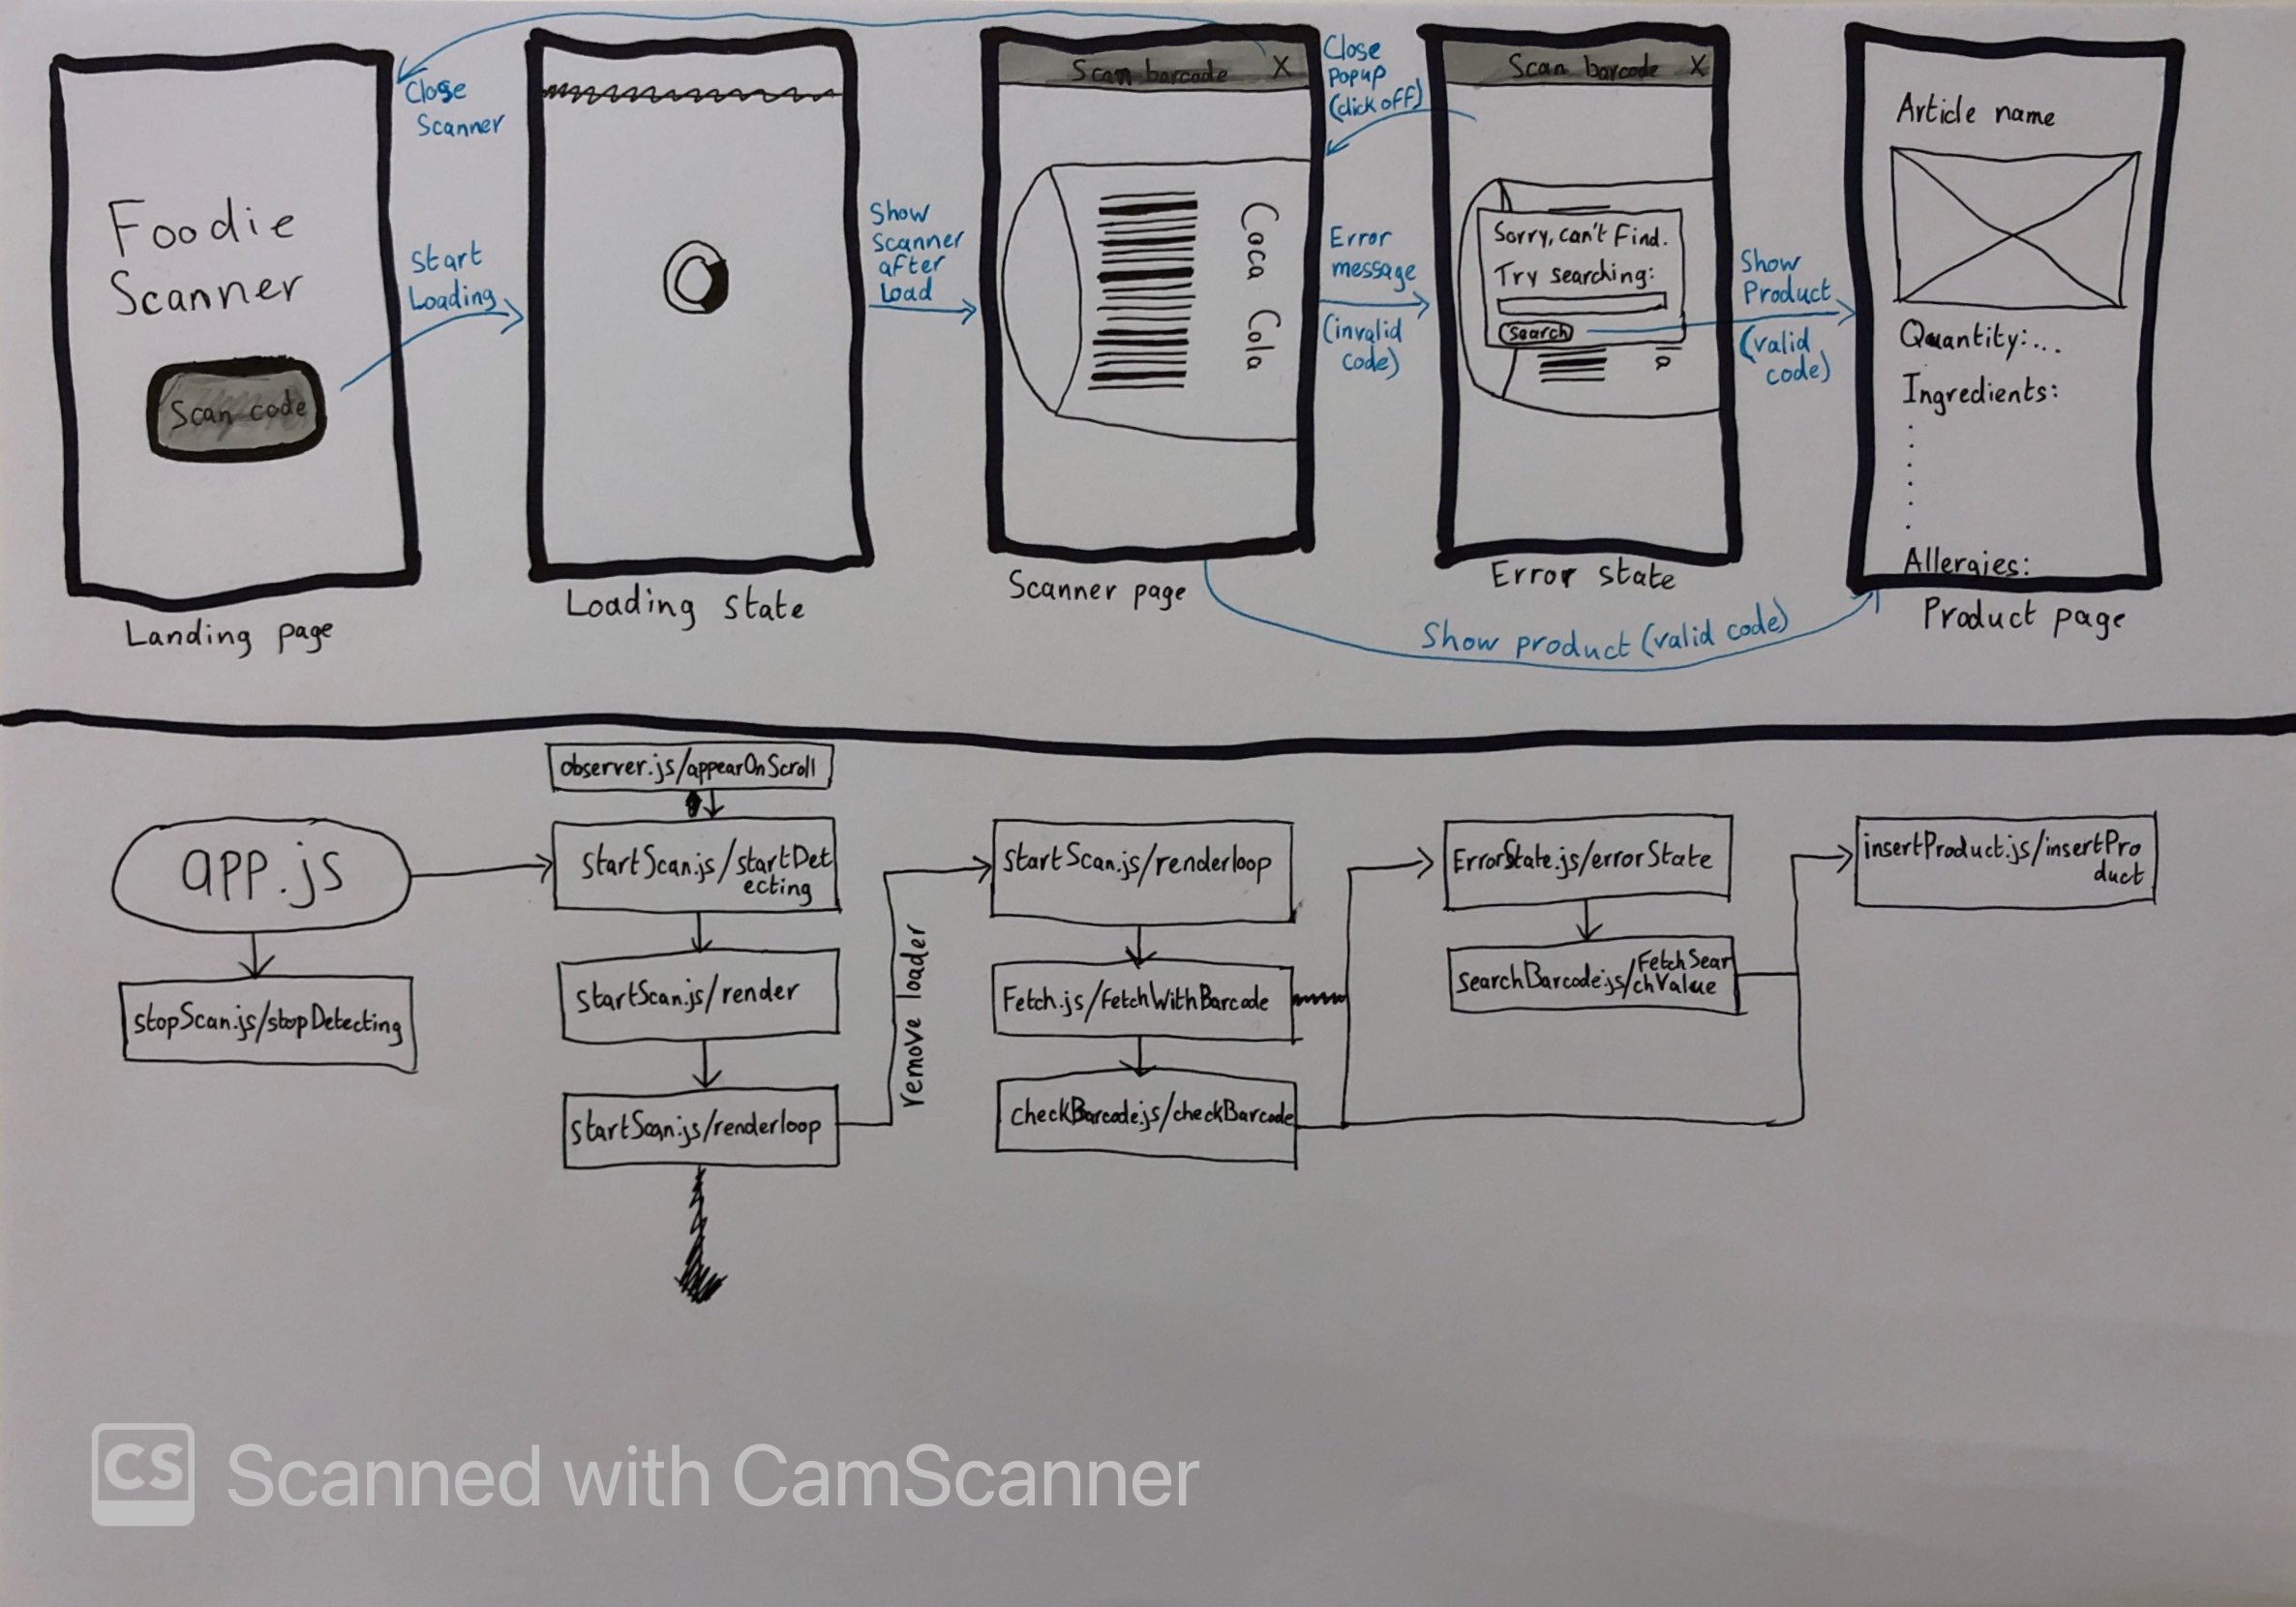 Foodie
Scanner
Scan code
Landing page
Close
Scanner
Start
Loading
Loading state
Show
Scanner
after
Load
Scan barcode X
Coca Cola
Scanner page
Close
Popup
(click off)
Error
message
(invalid
code)
Scan barcode X
Sorry, can't find.
Try searching:
Search
a
Error state
Show
Product
(valid
code)
Article name
Quantity:...
Ingredients:
Allergies:
Product page
Show product (valid code)
observer.js/appearOnScroll
app.js
stopScan.js/stopDetecting
startScan.js/startDet
ecting
startScan.js/render
startScan.js/renderloop
remove loader
startScan.js/renderloop
Fetch.js/FetchWithBarcode
checkBarcode.js/checkBarcode
ErrorState.js/errorState
searchBarcode.js/FetchSear
chValue
insertProduct.js/insertPro
duct
CS Scanned with CamScanner